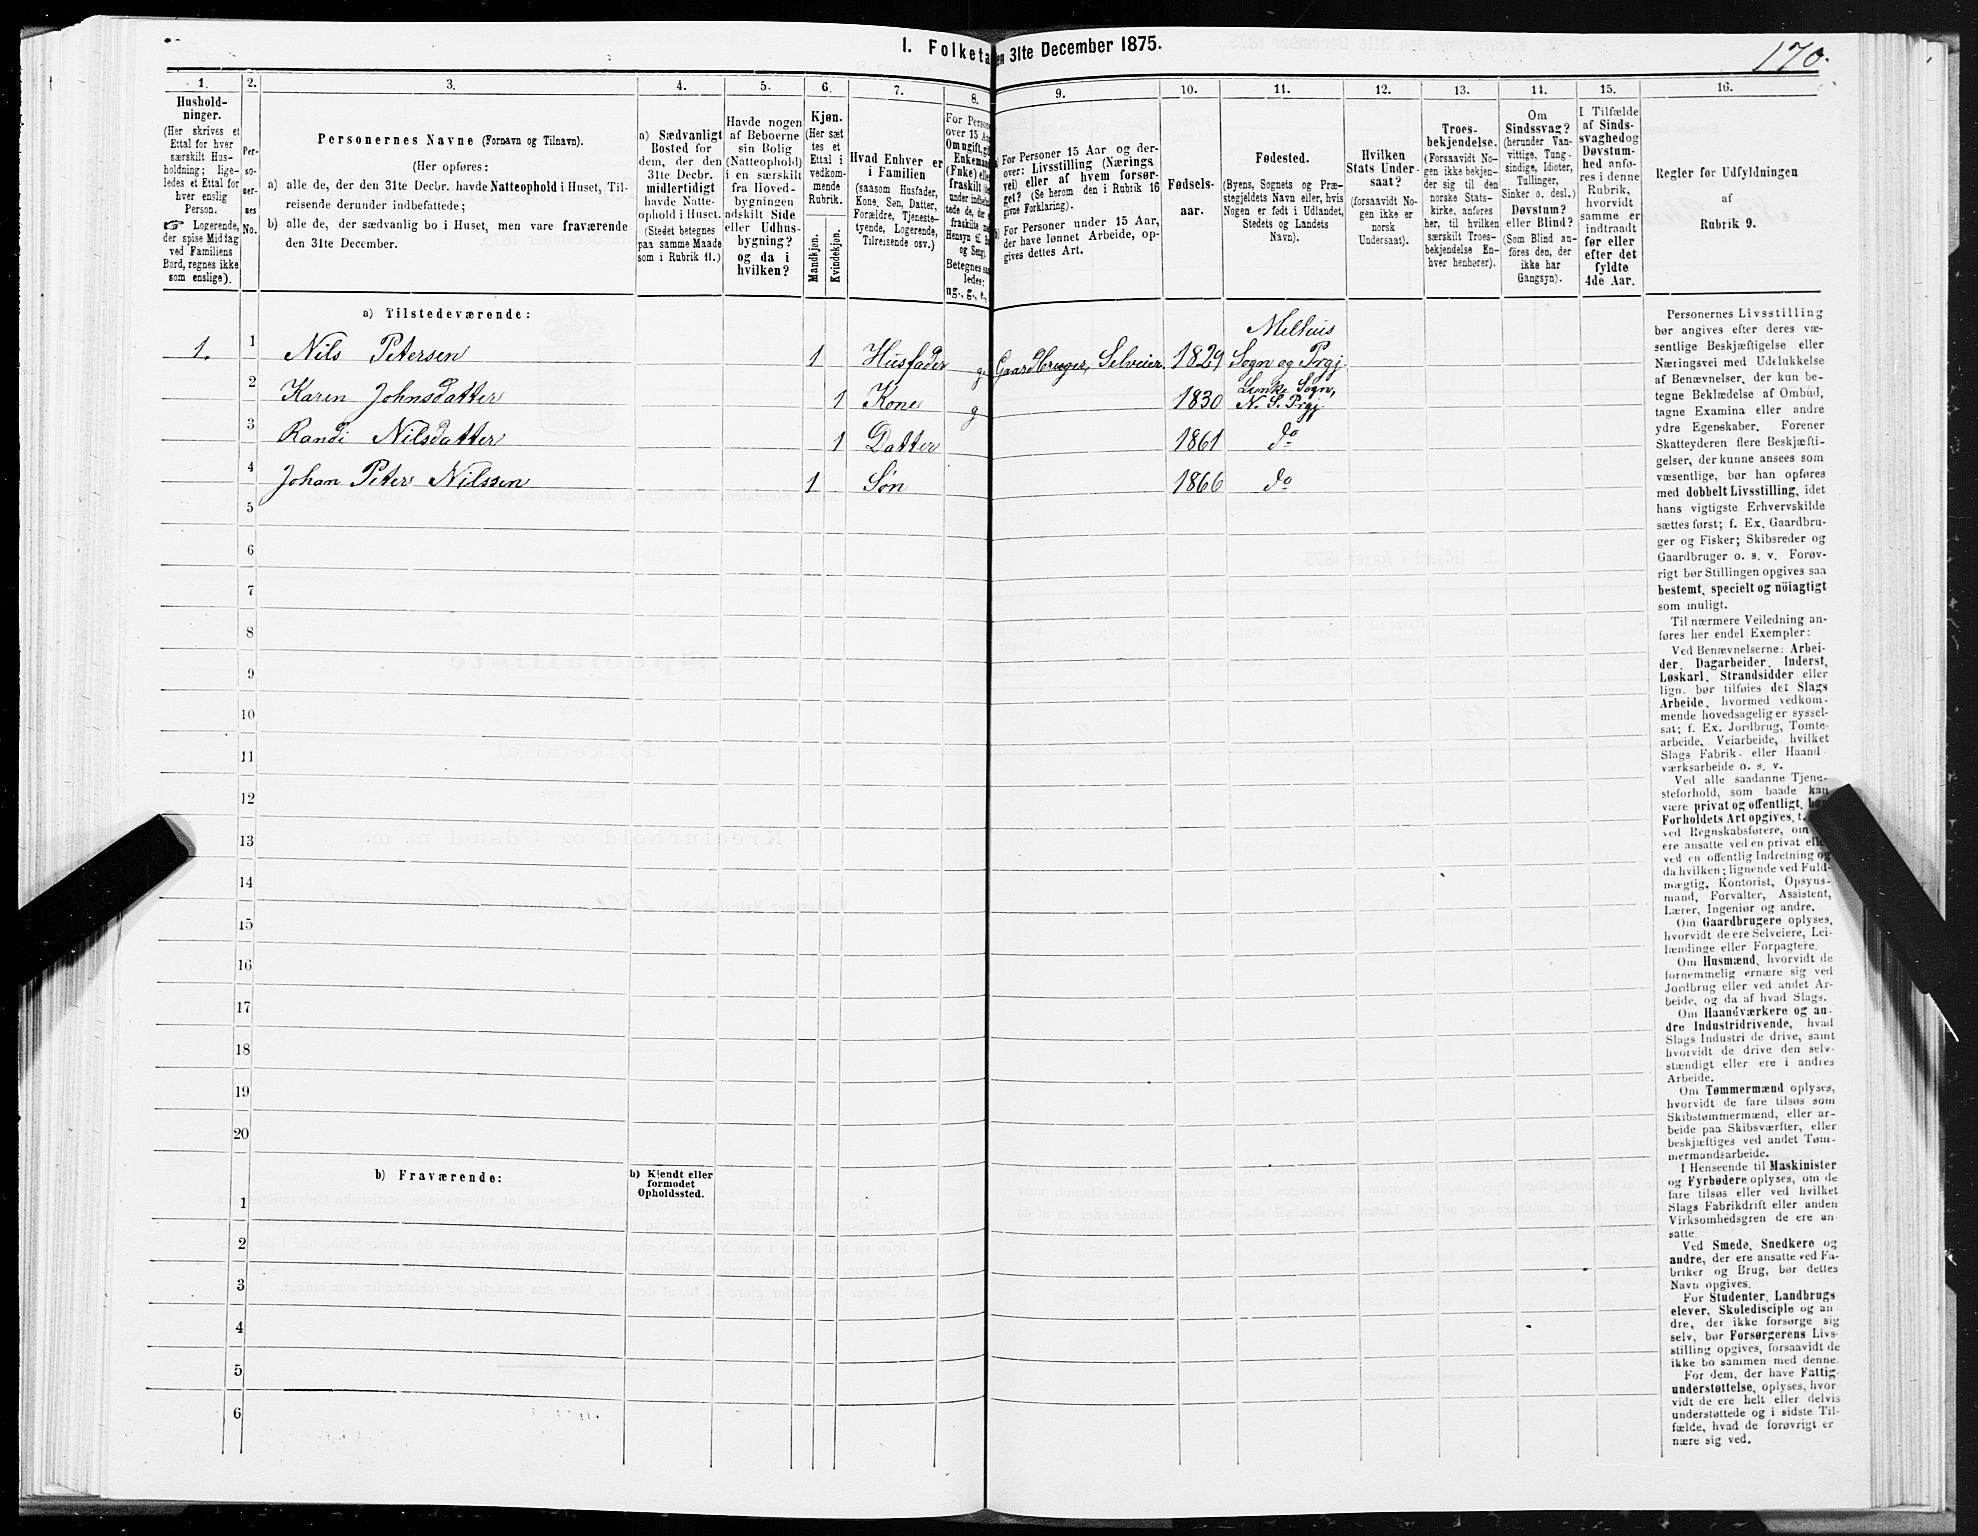 1. Folketa
en 31te December 1875.
170.
1.
2.
3.
4.
5.
6.
7.
8.
9.
10.
11.
12.
13.
14.
15.
16.
Hushold-
ninger.
(Her skrives et
Ettal for hver
særskilt Hus-
holdning; lige-
ledes et Ettal for
hver enslig
Person.
☞ Logerende,
der spise Middag
ved Familiens
Bord, regnes ikke
som enslige).
Per-
so-
ner-
nes
No.
Personernes Navne (Fornavn og Tilnavn).
(Her opføres:
a) alle de, der den 31te Decbr. havde Natteophold i Huset, Til-
reisende derunder indbefattede;
b) alle de, der sædvanlig bo i Huset, men vare fraværende
den 31te December.
a) Sædvanligt
Bosted for
dem, der den
31te Decbr.
midlertidigt
havde Natte-
ophold i Huset.
(Stedet betegnes
paa samme Maade
som i Rubrik 11.)
Havde nogen
af Beboerne
sin Bolig
(Natteophold)
i en særskilt
fra Hoved-
bygningen
adskilt Side
eller Udhus-
bygning?
og da i
hvilken?
Kjøn.
(Her sæt
tes et
Ettal i
vedkom-
mende
Rubrik.
Mandkjøn.
Kvindekjøn.
Hvad Enhver er
i Familien
(saasom Husfader,
Kone, Søn, Datter,
Forældre, Tjeneste-
tyende, Logerende,
Tilreisende osv.)
For Persone
over 15 Aa
Om ugift, gif
Enkemand
(Enke) elle
fraskilt
under indbefat-
tede de, der
fraskilte
Hensyn til
og Seng).
Betegnes saa
ledes:
ug., g., e.,
a) For Personer 15 Aar og der-
over: Livsstilling (Nærings
vei) eller af hvem forsør-
get? (Se herom den i Rubrik 16
givne Forklaring).
b) For Personer under 15 Aar,
der have lønnet Arbeide, op-
gives dettes Art.
Fødsels-
aar.
Fødested.
(Byens, Sognets og Præ-
stegjeldets Navn eller, hvis
Nogen er født i Udlandet,
Stedets og Landets
Navn).
Hvilken
Stats Under-
saat?
(forsaavidt No-
gen ikke er
norsk
Undersaat).
Troes-
bekjendelse.
(Forsaavidt No-
gen ikke bekjen-
der sig til den
norske Stats-
kirke, anføres
her, til hvilken
særskilt Troes-
bekjendelse En-
hver henhører).
Om
Sindssvag?
(herunder Van-
vittige, Tung-
sindige, Idioter,
Tullinger,
Sinker o. desl.)
Døvstum?
eller Blind?
(Som Blind an-
føres den, der
ikke har
Gangsyn).
I Tilfælde
af Sinds-
svaghed og
Døvstum-
hed anfø-
res i denne
Rubrik,
hvorvidt
samme er
indtraadt
før eller
efter det
fyldte
4de Aar.
Regler for Udfyldningen
af
Rubrik 9.
a) Tilstedeværende:
Melhus
1. 1 Nils Petersen 1 Husfader g Gaardbruger, Selveier. 1829 Sogn og Prgj.
Lunke Sogn,
2 Karen Johnsdatter 1 Kone g 1830 N. S. Prgj.
3 Randi Nilsdatter 1 Datter 1861 do
4 Johan Peter Nilssen 1 Søn 1866 do
5
6
7
8
9
10
11
12
13
14
15
16
17
18
19
20
b) Fraværende:
b) Kjendt eller
formodet
Opholdssted.
1
2
3
4
5
6
Personernes Livsstilling
bør angives efter deres væ-
sentlige Beskjæftigelse eller
Næringsvei med Udelukkelse
af Benævnelser, der kun be-
tegne Beklædelse af Ombud,
tagne Examina eller andre
ydre Egenskaber. Forener
Skatteyderen flere Beskjæfti-
gelser, der kunne ansees som
væsentlige, bør han opføres
med dobbelt Livsstilling, idet
hans vigtigste Erhvervskilde
sættes først; f. Ex. Gaardbru-
ger og Fisker; Skibsreder og
Gaardbruger o. s. v. Forøv-
rigt bør Stillingen opgives saa
bestemt, specielt og nöiagtigt
som muligt.
Til nærmere Veiledning an-
føres her endel Exempler:
Ved Benævnelserne: Arbei-
der, Dagarbeider, Inderst,
Løskarl, Strandsidder eller
lign. bør tilføies det Slags
Arbeide, hvormed vedkom-
mende hovedsagelig er syssel-
sat; f. Ex. Jordbrug, Tomte-
arbeide, Veiarbeide, hvilket
Slags Fabrik- eller Haand-
værksarbeide o. s. v.
Ved alle saadanne Tjene-
steforhold, som baade kan
være privat og offentligt, bør
Forholdets Art opgives, t.
ved Regnskabsførere, om
ere ansatte ved en privat elle
ved en offentlig Indretning og
da hvilken; lignende ved Fuld-
mægtig, Kontorist, Opsyns-
mand, Forvalter, Assistent,
Lærer, Ingeniør og andre.
Om Gaardbrugere oplyses,
hvorvidt de ere Selveiere, Lei-
lændinge eller Forpagtere.
Om Husmænd, hvorvidt de
fornemmelig ernære sig ved
Jordbrug eller ved andet Ar-
beide, og da af hvad Slags.
Om Haandværkere og an-
dre Industridrivende, hvad
Slags Industri de drive, samt
hvorvidt de drive den selv-
stændigt eller ere i andres
Arbeide.
Om Tømmermænd oplyses,
hvorvidt de fare tilsøs som
Skibstømmermænd, eller ar-
beide paa Skibsværfter, eller
beskjæftiges ved andet Tøm-
mermandsarbeide.
I Henseende til Maskinister
og Fyrbødere oplyses, om de
fare tilsøs eller ved hvilket
Slags Fabrikdrift eller anden
Virksomhedsgren de ere an-
satte.
Ved Smede, Snedkere og
andre, der ere ansatte ved Fa-
briker og Brug, bør dettes
Navn opgives.
For Studenter, Landbrugs-
elever, Skoledisciple og an-
dre, der ikke forsørge sig
selv, bør Forsørgerens Livs-
stilling opgives, forsaavidt de
ikke bo sammen med denne.
For dem, der have Fattig-
understøttelse, oplyses, hvor-
vidt de ere helt eller delvis
understøttede og i sidste Til-
fælde, hvad de forøvrigt er
nære sig ved.